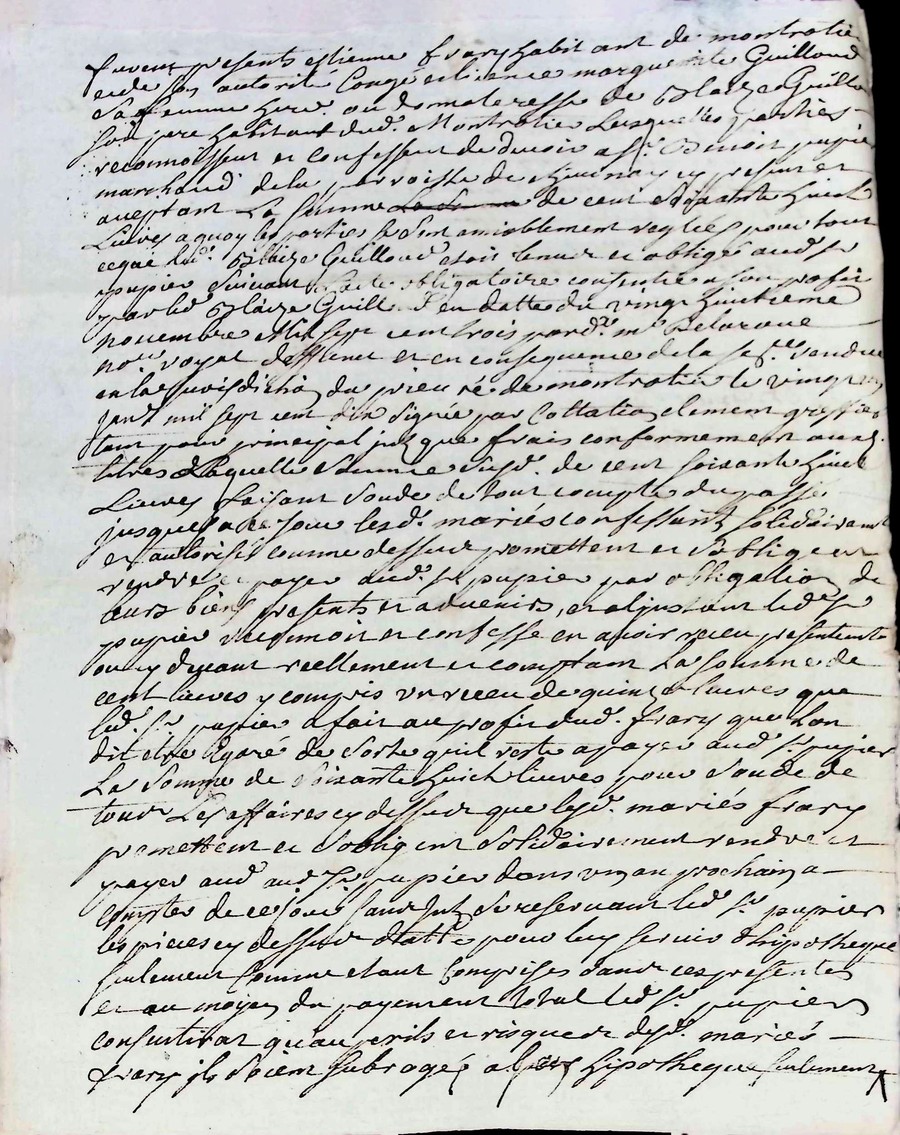 furent presents estienne frary habitant de montrotie
et de son autorité Congé et licence marguerite Guilloud
Sa femme here. ou domateresse de Blaize Guillou
son pere habitant dud. Montrotier Lesquelles parties
reconnoissent et confessent debvoir a Sr. Benoit pupier
marchand de la parroisse de cy present et
aceptant La somme de cent soixante huict
Livres a quoy les parties se sont amiablement reglées pour tout
ceque led. Blaize Guilloud estoit tenu et obligé aud. Sr
pupier suivant l'acte obligatoire consentie a son profit
par led Blaize Guill en datte du vingt huictieme
novembre Mil sept cent trois pard. me Delaroue
nore. royal et en consequence de la rendue
en la Jurisdiction du prieuré de montrotier le vingt
janv mil sept cent dix signée par Collation clement greffier
tant pour principal que frais conformement aud.
titres Laquelle somme susd. de cent soixante huict
Livres faisant soude de tout compte du passé
jusques a ce jour lesd. mariés confessant solidairemt
et autorisée comme dessus promettent et s'obligent
rendre et payer aud. sr pupier par obligation de
leurs biens presents et advenirs, et a l'instant led. Sr
pupier reconnoit et confesse en avoir receu presentemt
ou cy devant reellement et comptant La somme de
cent livres y compris un receu de quinze livres que
led. Sr. pupier a fait au profit dud. frary que Lon
dit etre Egaré de sorte qu'il reste a payer aud Sr. pupier
La somme de soixante huict livres pour soude de
tous Les affaires cy dessus que lesd. mariés frary
promettent et sobligent solidairement rendre et
payer aud aud Sr. pupier dans un an prochain a
Compter de ce jour se reservant led Sr. pupier
les pieces cy dessus pour luy servir d'hipotheque
seulement Comme etant Comprises dans ces presentes
et au moyen du payement total led Sr. pupier
consentirat qu'au perils et risque desd. mariés
frary ils soient subrogés a hipotheque seulement